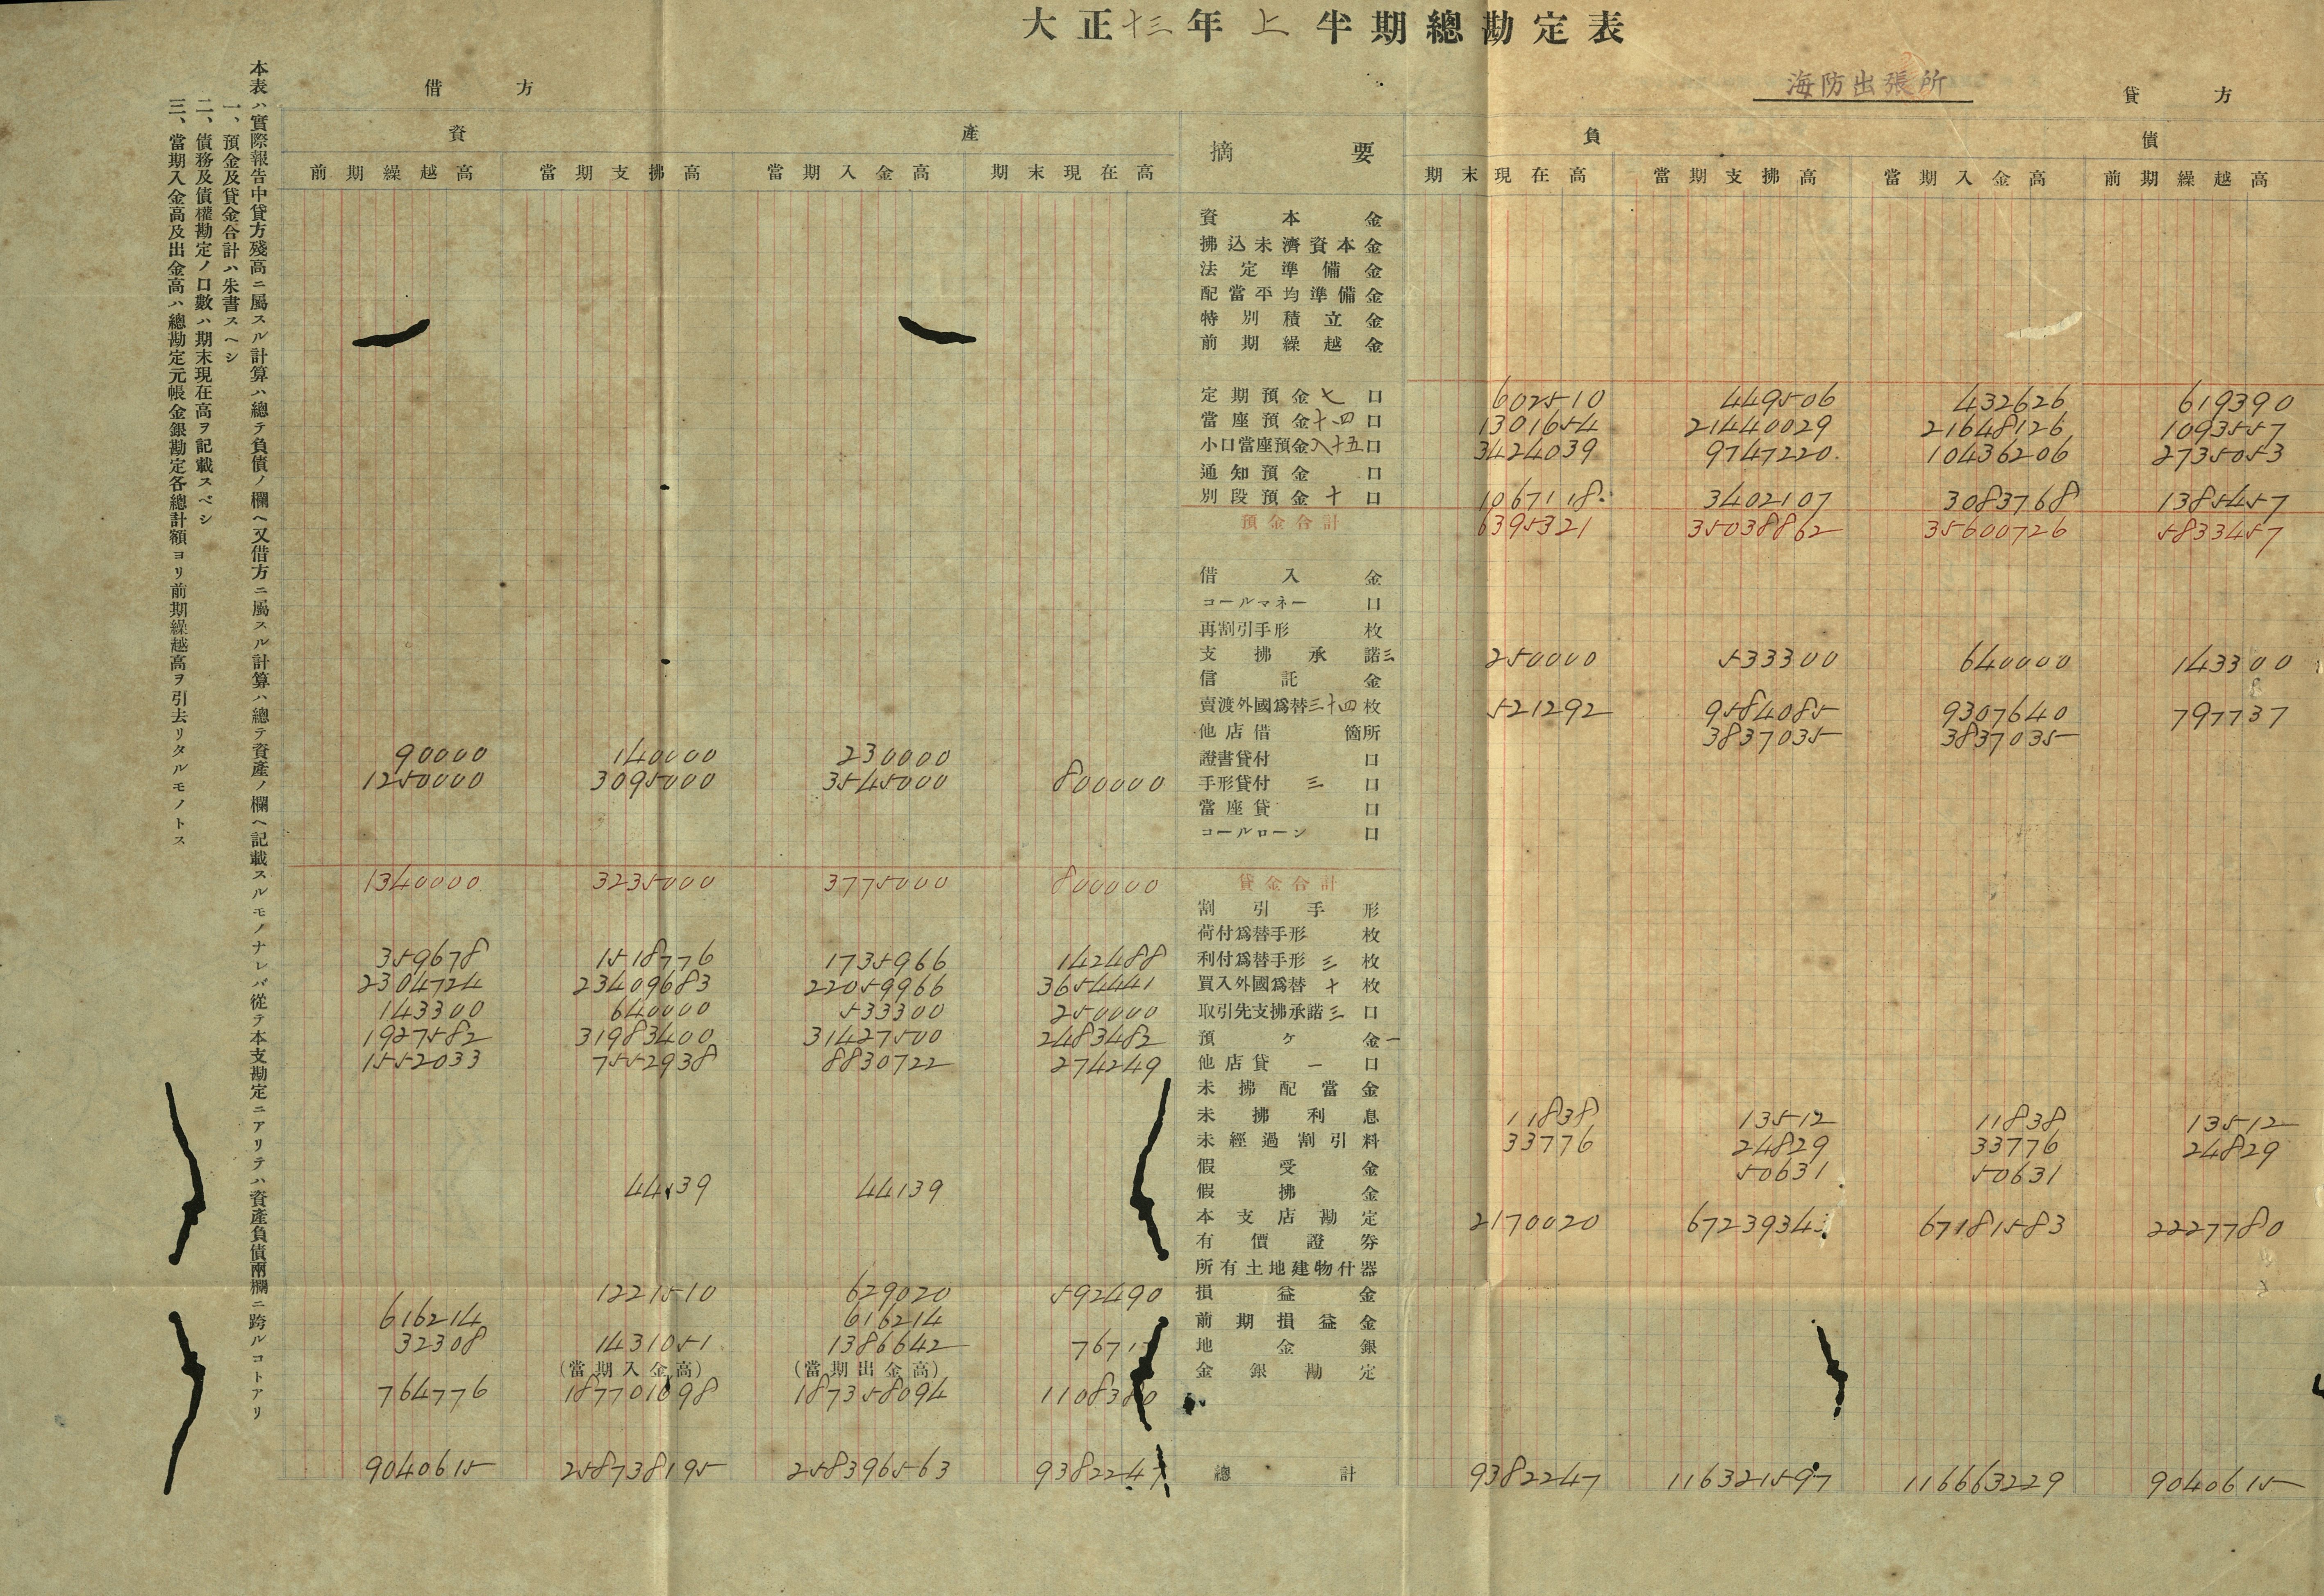 大正十三年上半期總勘定表
海防出張所
借方
貸方
資產
摘要
負債
前期繰越高 當期支拂高 當期入金高 期末現在高 期末現在高 當期支拂高 當期入金高 前期繰越高
資本金
拂込未濟資本金
法定準備金
配當平均準備金
特別積立金
前期繰越金
定期預金七口 602510 449506 432626 619390
當座預金十四口 1301654 21440029 21648126 1093557
小口當座預金八十五口 3424039 9747220 10436206 2735053
通知預金口
別段預金十口 1067118 3402107 3083768 1385457
預金合計 6395321 35038862 35600726 5833457
借入金
コールマネー口
再割引手形枚
支拂承諾三 250000 533300 640000 143300
信託金
賣渡外國爲替三十四枚 521292 9584085 9307640 797737
他店借箇所 3837035 3837035
90000 140000 230000 證書貸付口
1250000 3095000 3545000 800000 手形貸付三口
當座貸口
コールローン口
1340000 3235000 3775000 800000 貸金合計
割引手形
荷付爲替手形枚
359678 1518776 1735966 142488 利付爲替手形三枚
2304724 23409683 22059966 3654441 買入外國爲替十枚
143300 640000 533300 250000 取引先支拂承諾三口
1927582 31983400 31427500 2483482 預ケ金一
1552033 7552938 8830722 274249 他店貸一口
未拂配當金
未拂利息 11838 13512 11838 13512
未經過割引料 33776 24829 33776 24829
假受金 50631 50631
44139 44139 假拂金
本支店勘定 2170020 67239343 67181583 2227780
有價證券
所有土地建物什器
1221510 629020 592490 損益金
616214 616214 前期損益金
32308 1431051 1386642 7671 地金銀
(當期入金高) (當期出金高) 金銀勘定
764776 187701698 187358094 1108380
9040615 258738195 258396563 9382247 總計 9382247 116321597 116663229 9040615
本表ハ實際報告中貸方殘高ニ屬スル計算ハ總テ負債ノ欄ヘ又借方ニ屬スル計算ハ總テ資產ノ欄ヘ記載スルモノナレバ從テ本支勘定ニアリテハ資產負債兩欄ニ跨ルコトアリ
一、預金及貸金合計ハ朱書スヘシ
二、債務及債權勘定ノ口數ハ期末現在高ヲ記載スベシ
三、當期入金高及出金高ハ總勘定元帳金銀勘定各總計額ヨリ前期繰越高ヲ引去リタルモノトス